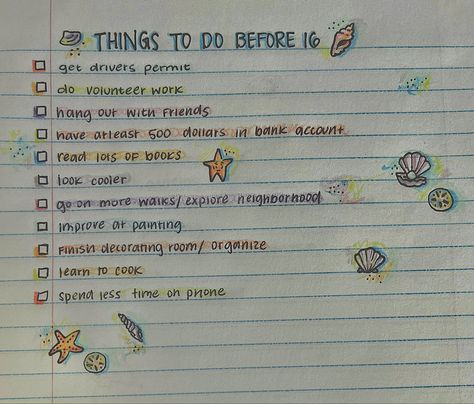 THINGS TO DO BEFORE 16
get drivers permit
do volunteer work
hang out with friends
have atleast 500 dollars in bank account
read lots of books
look cooler
go on more walks/ explore neighborhood
improve at painting
finish decorating room/ organize
learn to cook
spend less time on phone